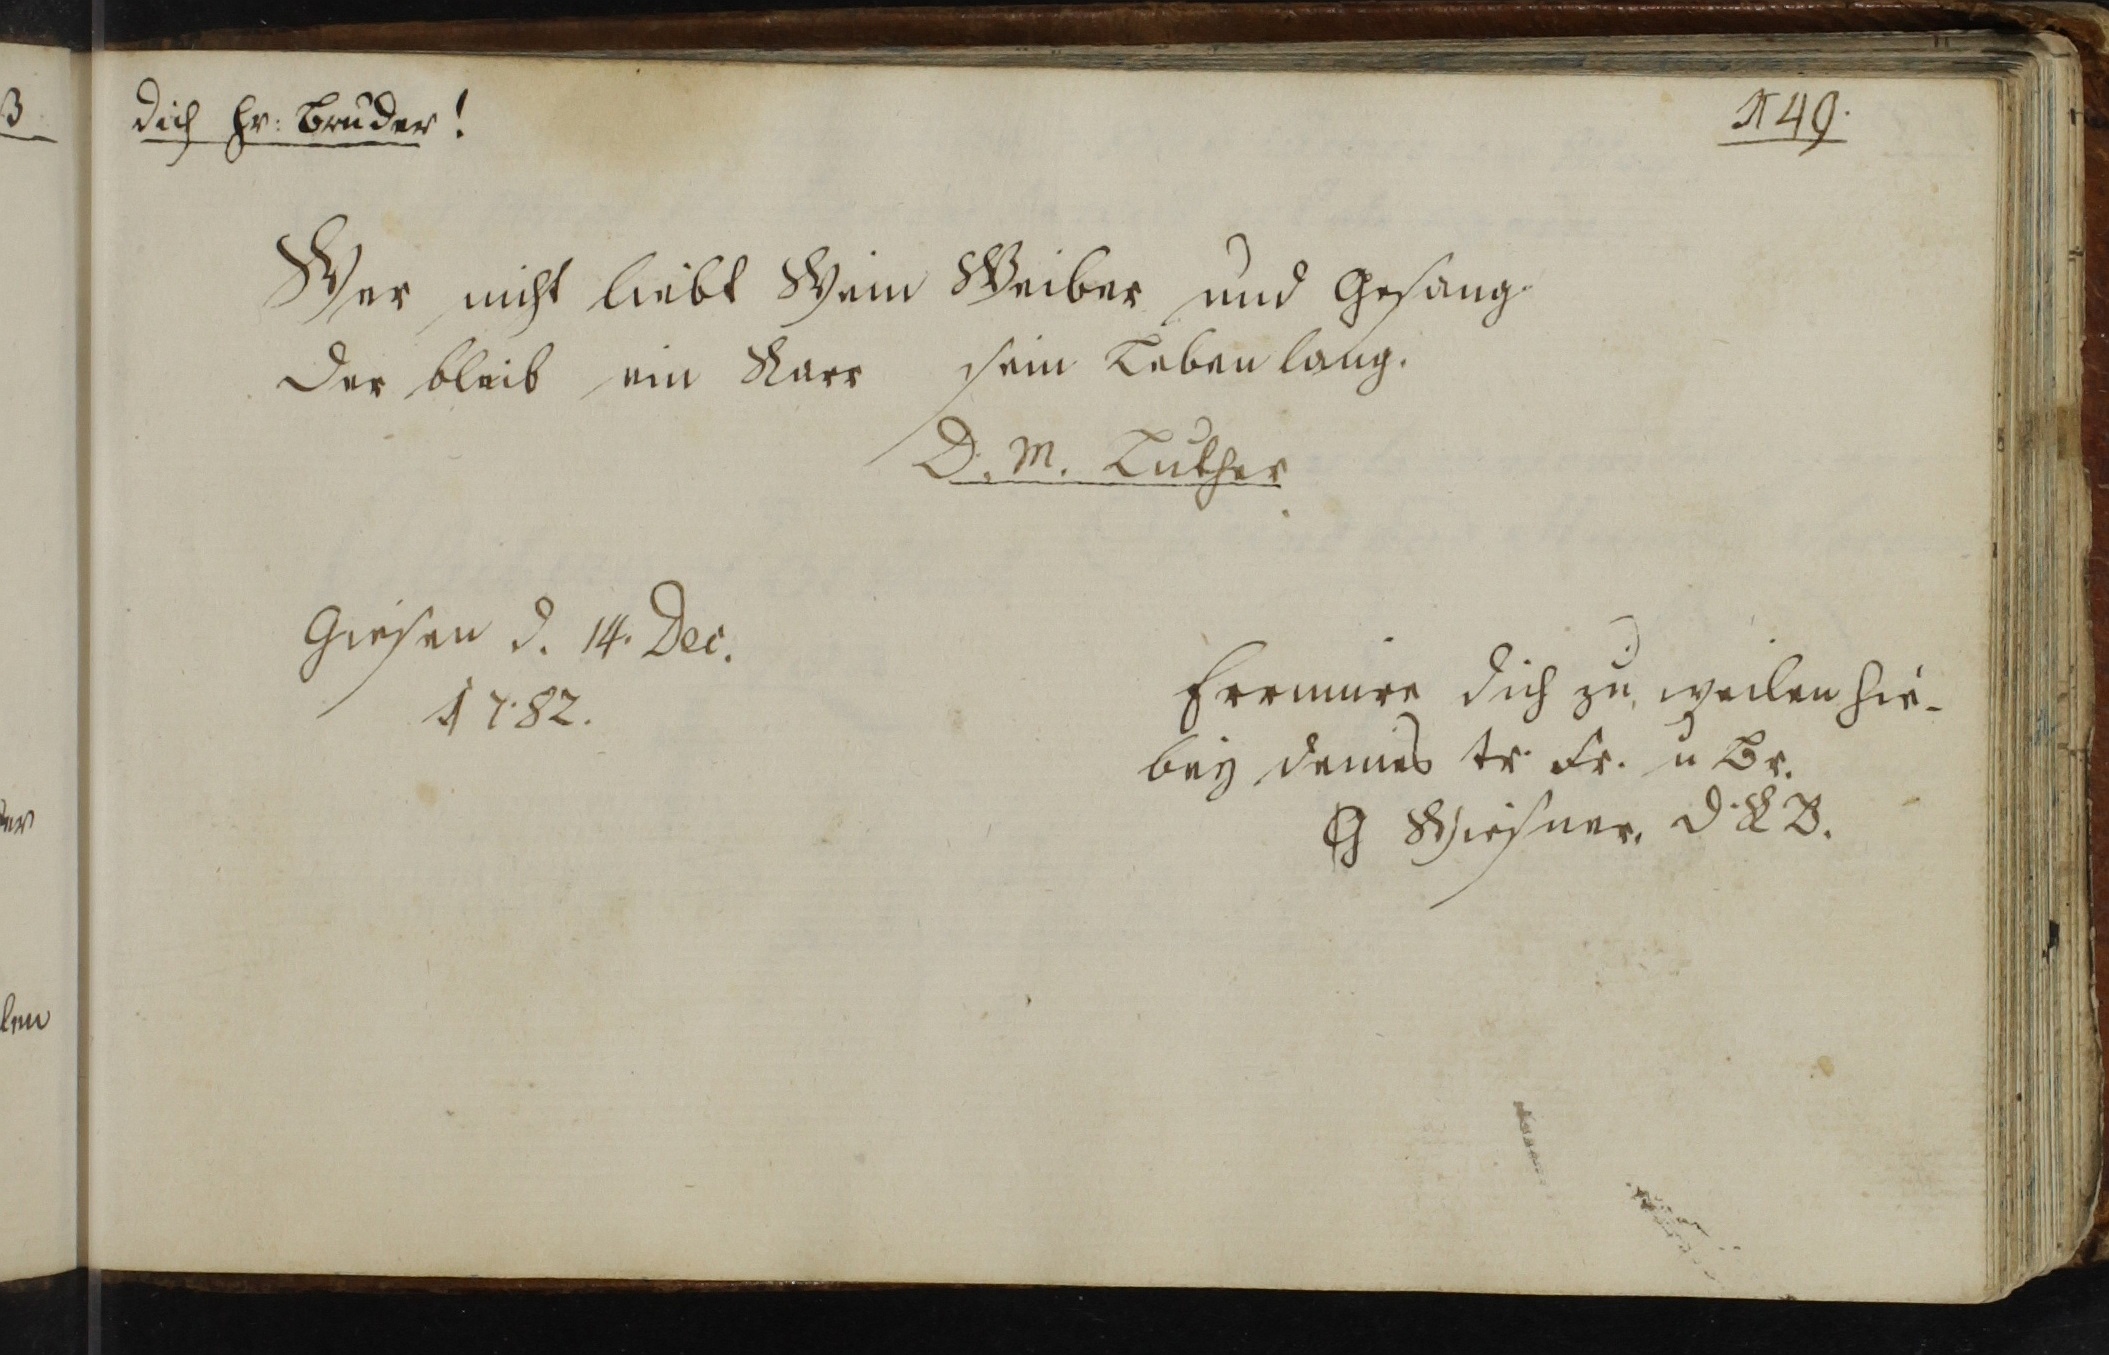 Dich Hr: Bruder!
149.
Wer nicht liebt Wein Weiber und Gesang
der bleib ein Narr sein Leben lang.
D. M. Luther
Giesen d. 14. Dec.
1782.
Errinnre dich zu weilen hie-
bey deines tr. Fr. u Br.
G Wiesner. d. R B.